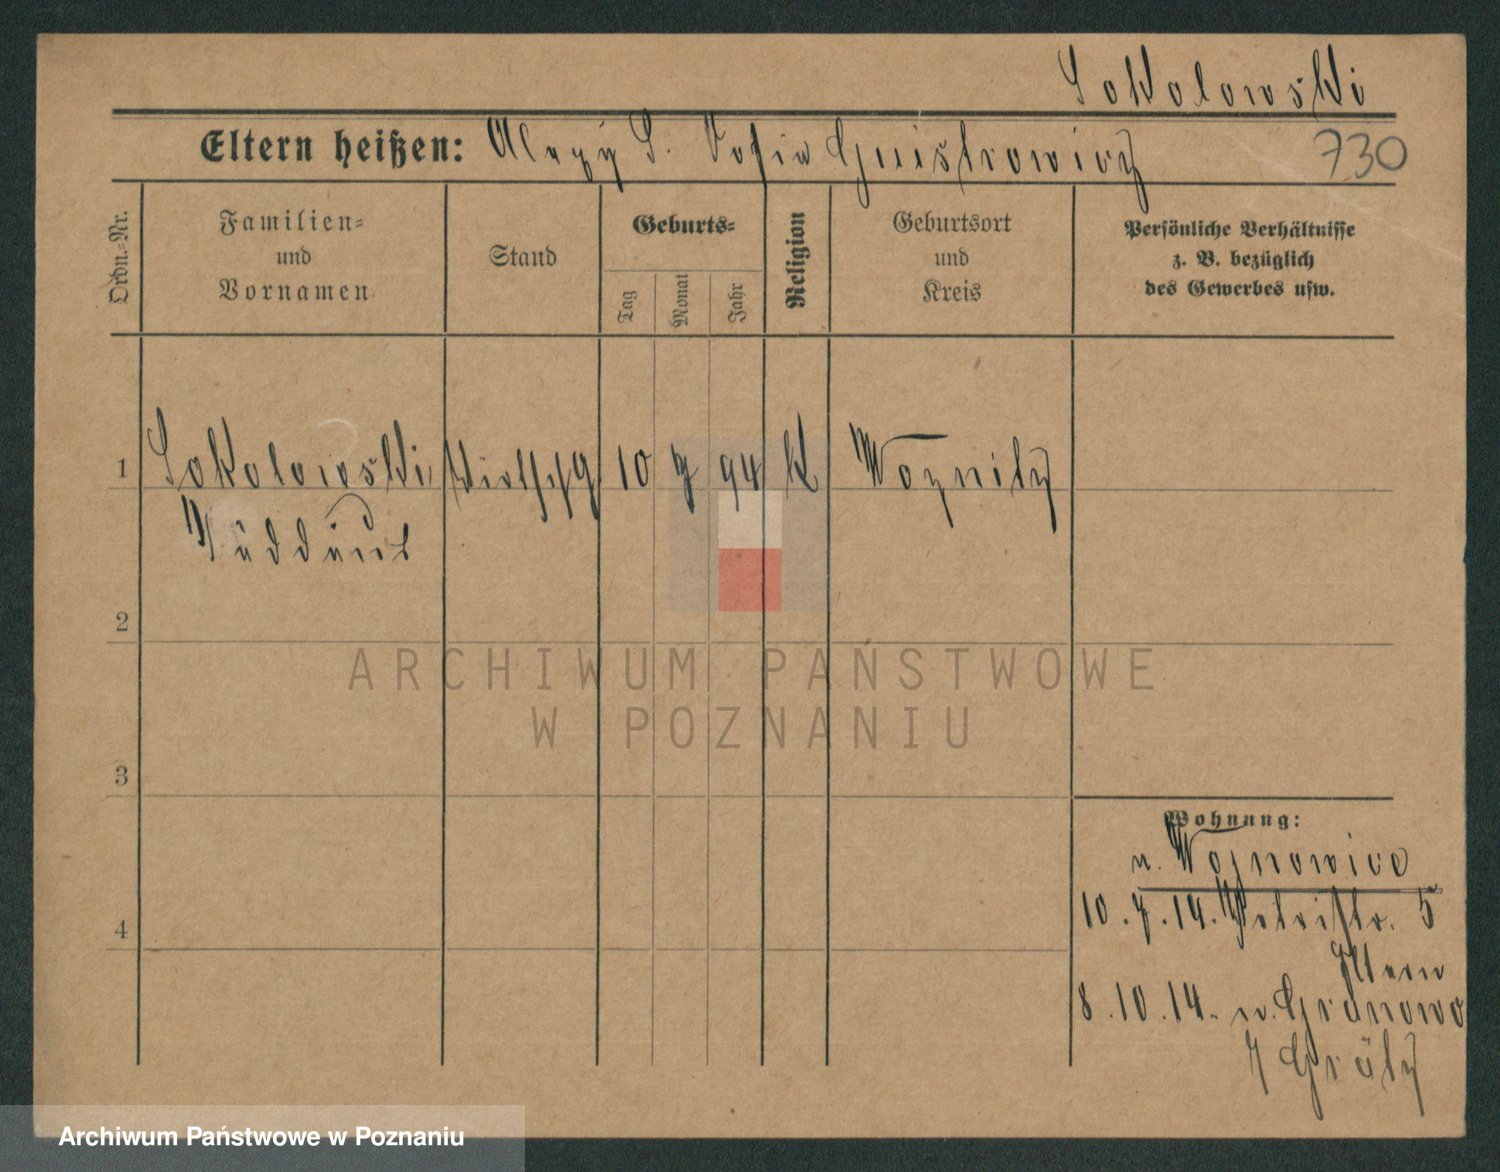 Sokolowski
Eltern heißen: Alexy S. Sofia
730
Ordn.-Nr.
Familien-
und
Vornamen
Stand
Geburts-
Tag
Monat
Jahr
Religion
Geburtsort
und
Kreis
Persönliche Verhältnisse
z. B. bezüglich
des Gewerbes usw.
1
Sokolowski, 10 7 94 K
2
3
4
Wohnung:
n. Wojnowice
10.7.14. Petristr. 5
Eltern
8.10.14. n. Granowo
Grätz
ARCHIWUM PAŃSTWOWE
W POZNANIU
Archiwum Państwowe w Poznaniu